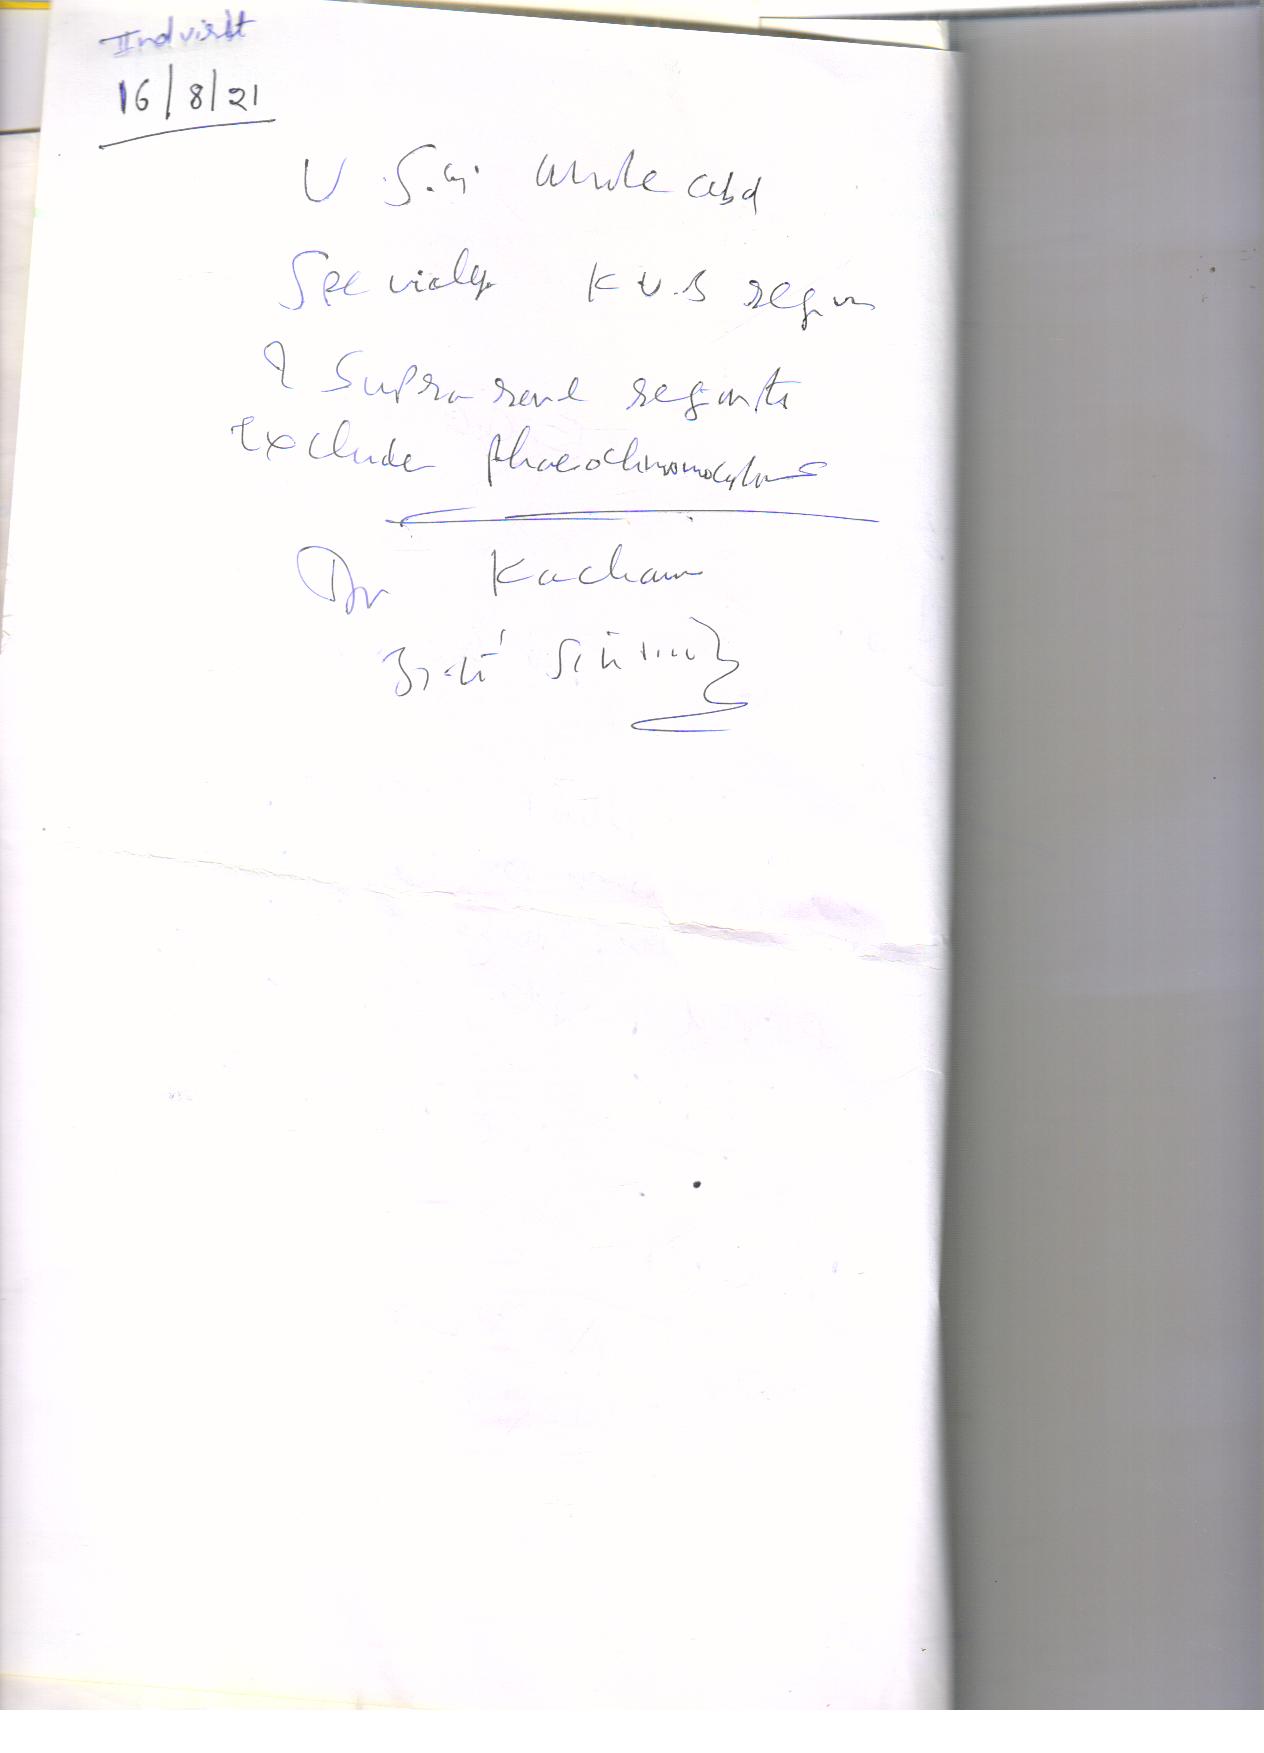 IInd visit
16/8/21
U.S.G. whole abd
Specialy K.U.B region
& Suprarenal region to
Exclude phaeochromocytoma
Dr Kacham